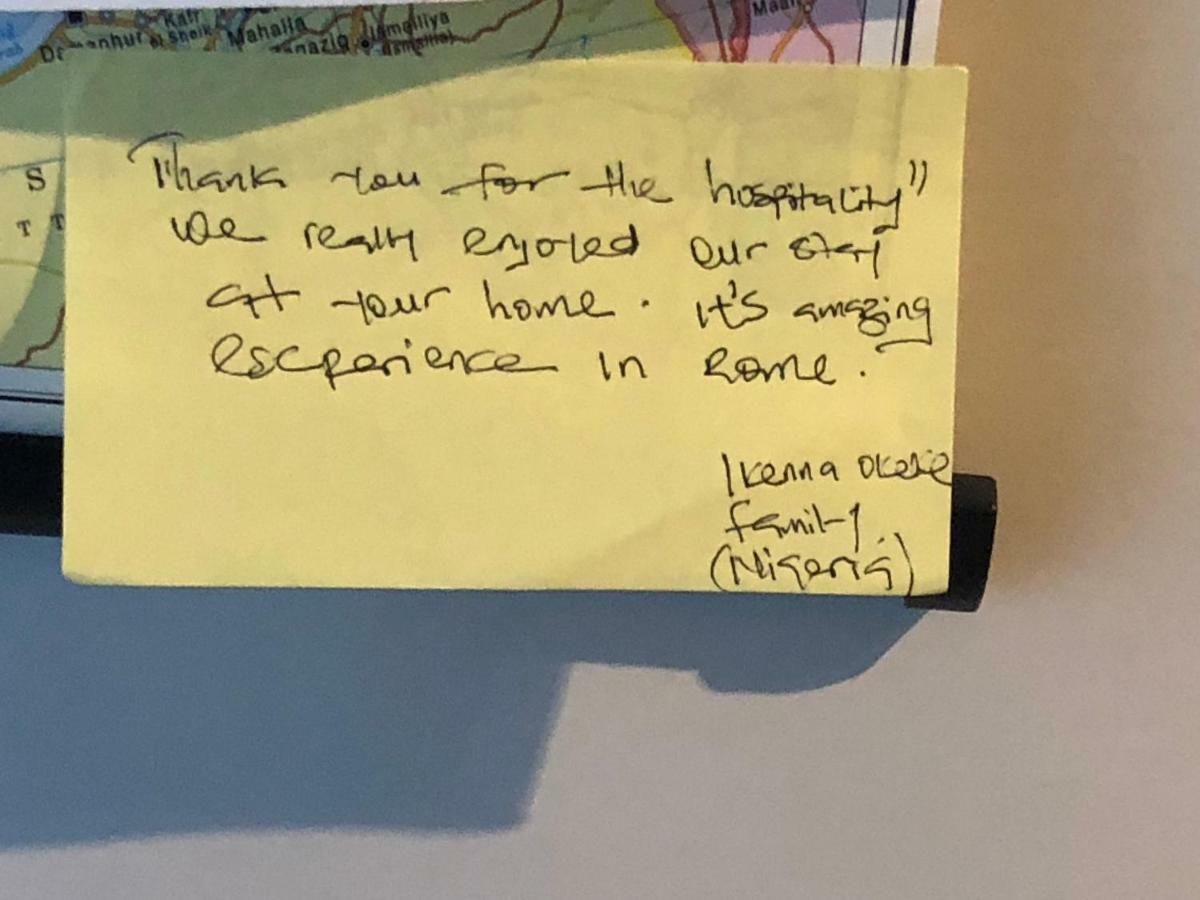 Kafr
Sheik
Mahalla
Ismailiya
(Ismailia)
S
T T
Thank you for the hospitality"
we really enjoyed our stay
at your home. it's amazing
escperience in Rome.
Ikenna Okeke
family.
(Nigeria)